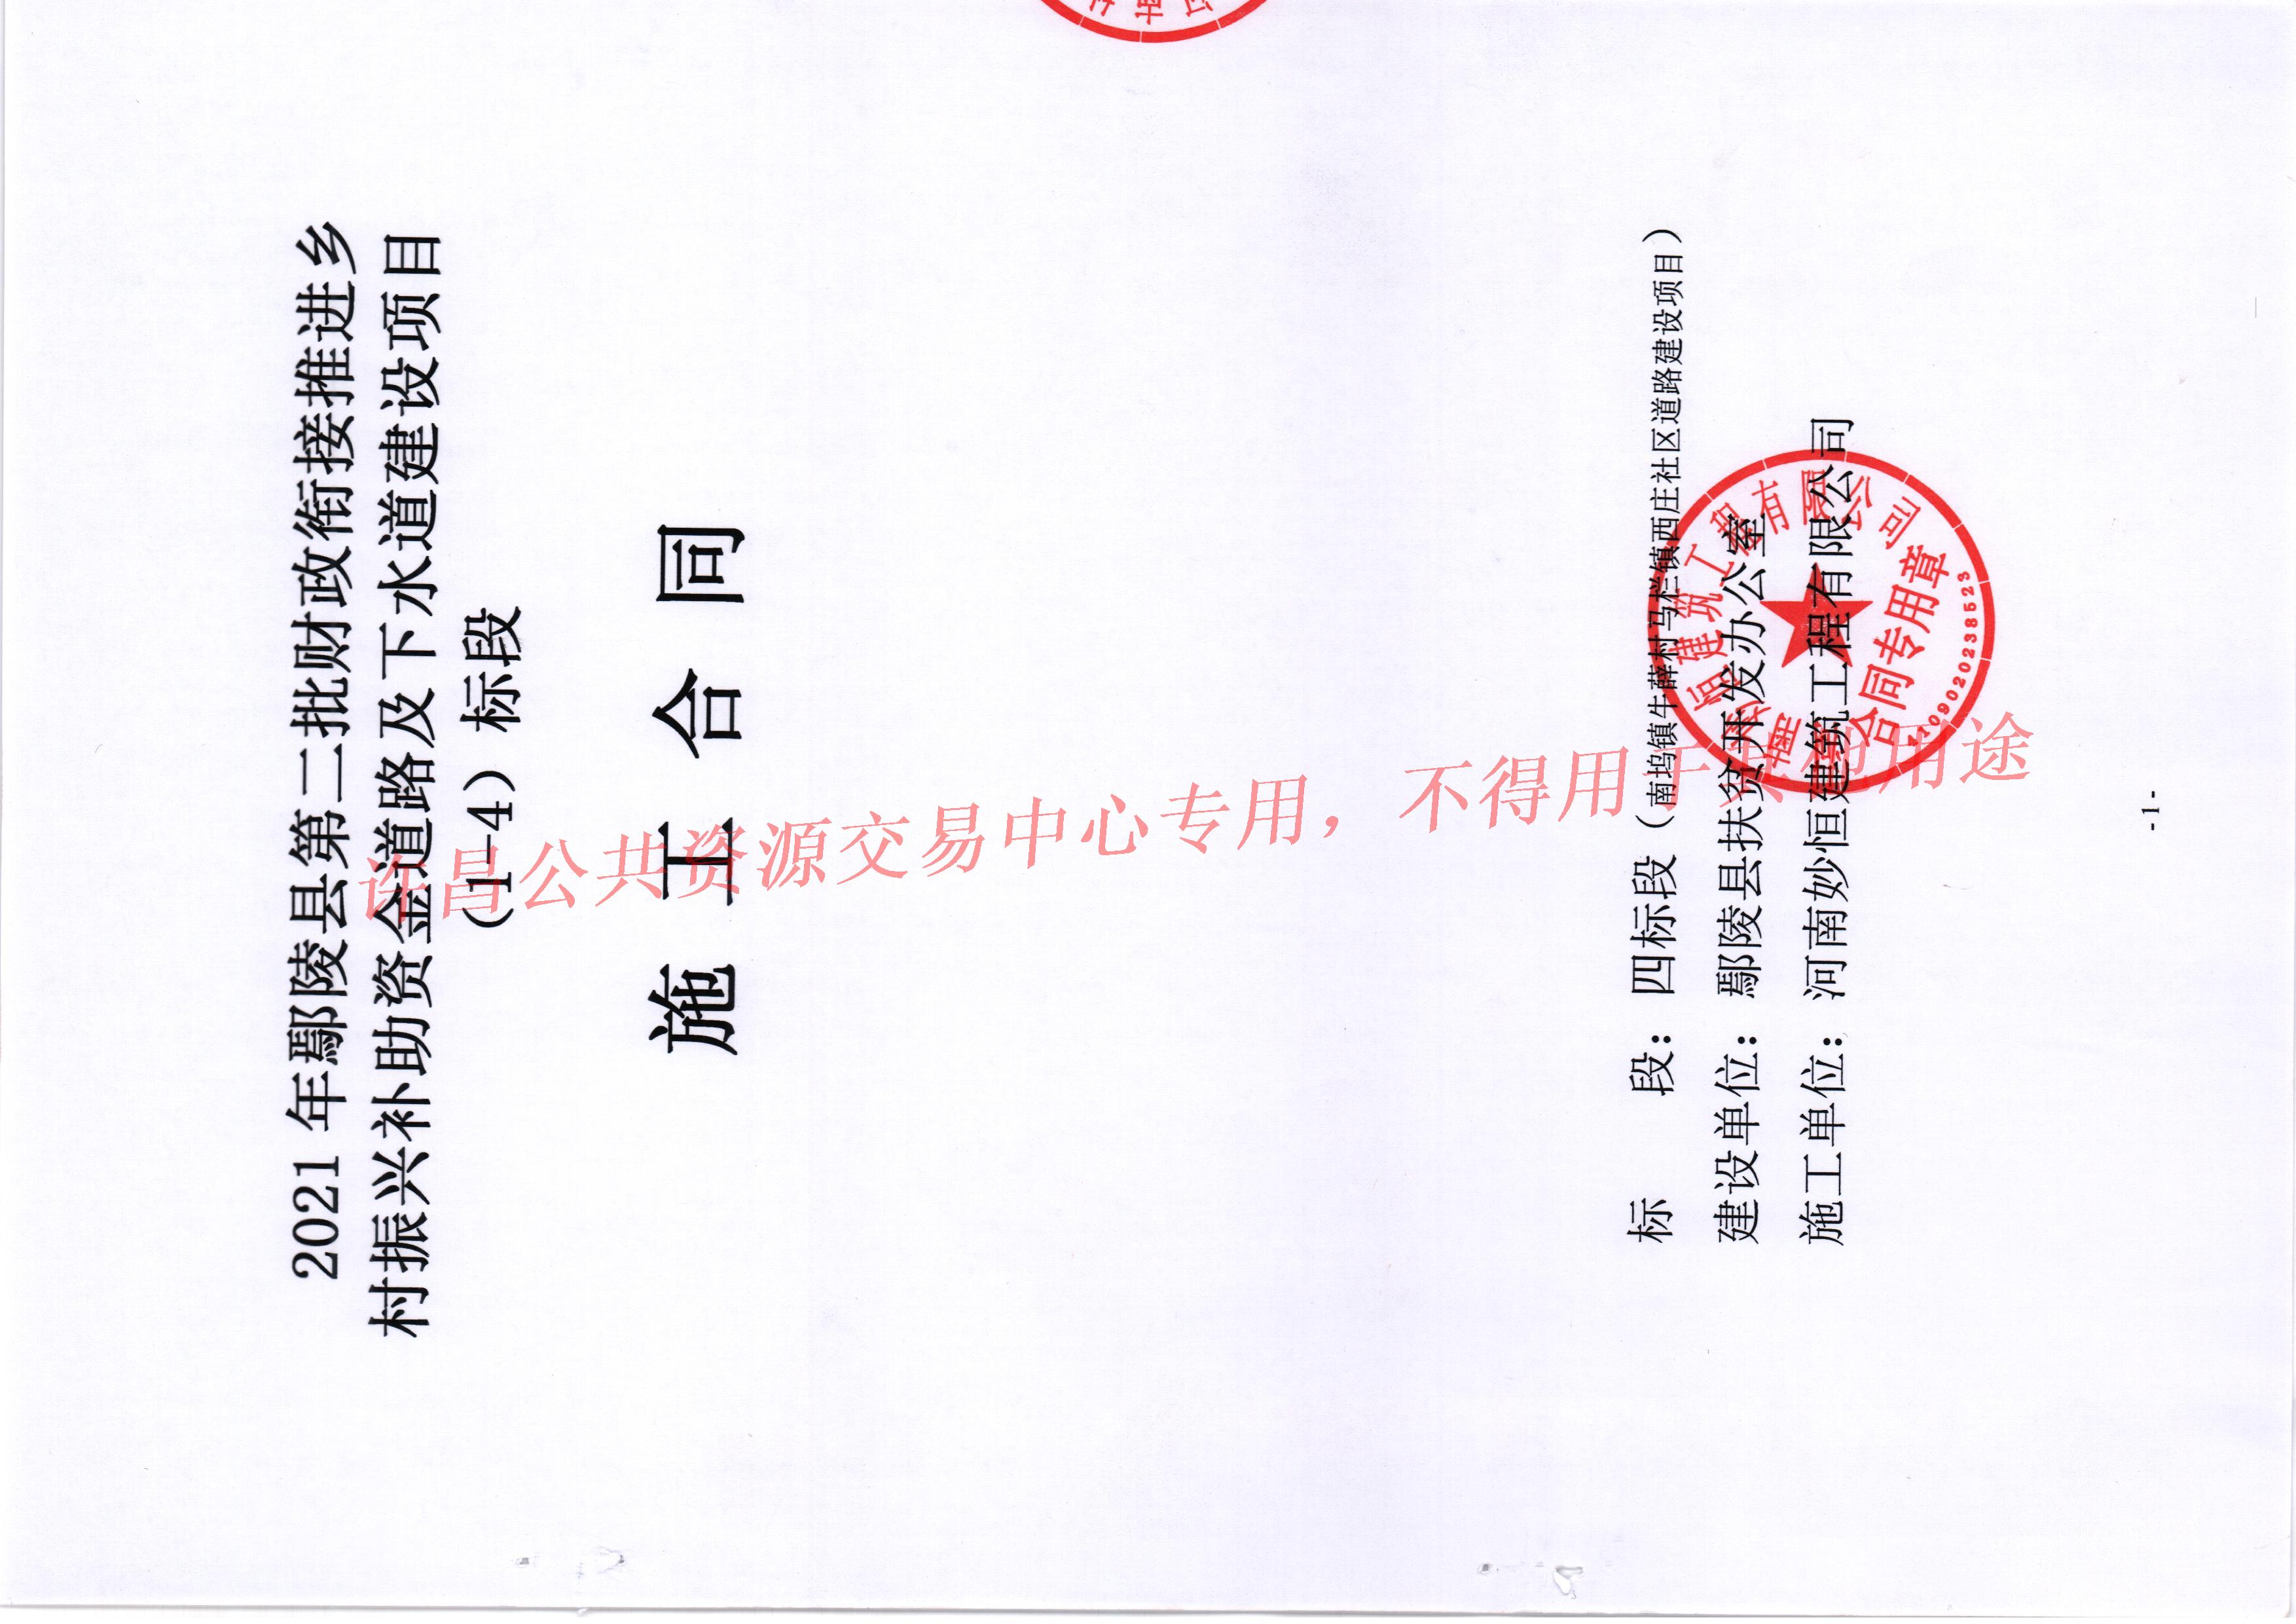 2021 年鄢陵县第二批财政衔接推进乡
村振兴补助资金道路及下水道建设项目
（1-4）标段
施 工 合 同
许昌公共资源交易中心专用，不得用于其他用途
标 段：四标段（南坞镇牛薛村马栏镇西庄社区道路建设项目）
建设单位：鄢陵县扶贫开发办公室
施工单位：河南妙恒建筑工程有限公司
妙恒建筑工程有限公司
合同专用章
4109020238523
- 1 -